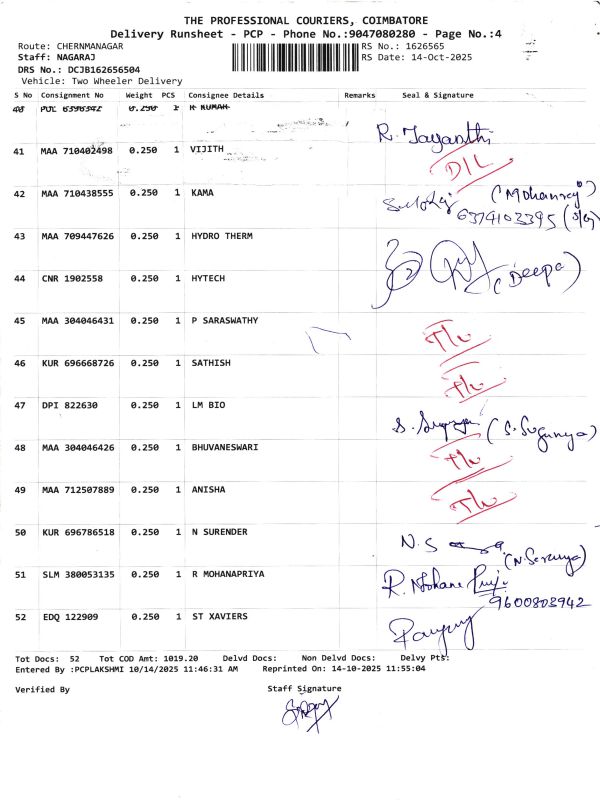 THE PROFESSIONAL COURIERS, COIMBATORE
Delivery Runsheet - PCP - Phone No.:9047080280 - Page No.:4
Route: CHERNMANAGAR RS No.: 1626565
Staff: NAGARAJ RS Date: 14-Oct-2025
DRS No.: DCJB162656504
Vehicle: Two Wheeler Delivery
S No Consignment No Weight PCS Consignee Details Remarks Seal & Signature
40 0.250 1 K KUMAR
R. Jayanthi
41 MAA 710402498 0.250 1 VIJITH
D/L
42 MAA 710438555 0.250 1 KAMA (Mohanraj)
6374103395
43 MAA 709447626 0.250 1 HYDRO THERM
44 CNR 1902558 0.250 1 HYTECH (Deepa)
45 MAA 304046431 0.250 1 P SARASWATHY
46 KUR 696668726 0.250 1 SATHISH
47 DPI 822630 0.250 1 LM BIO
(S. Suganya)
48 MAA 304046426 0.250 1 BHUVANESWARI
49 MAA 712507889 0.250 1 ANISHA
50 KUR 696786518 0.250 1 N SURENDER N.S
(N. Saranya)
51 SLM 380053135 0.250 1 R MOHANAPRIYA R. Mohana Priya
9600803942
52 EDQ 122909 0.250 1 ST XAVIERS
Tot Docs: 52 Tot COD Amt: 1019.20 Delvd Docs: Non Delvd Docs: Delvy Pts:
Entered By :PCPLAKSHMI 10/14/2025 11:46:31 AM Reprinted On: 14-10-2025 11:55:04
Verified By Staff Signature